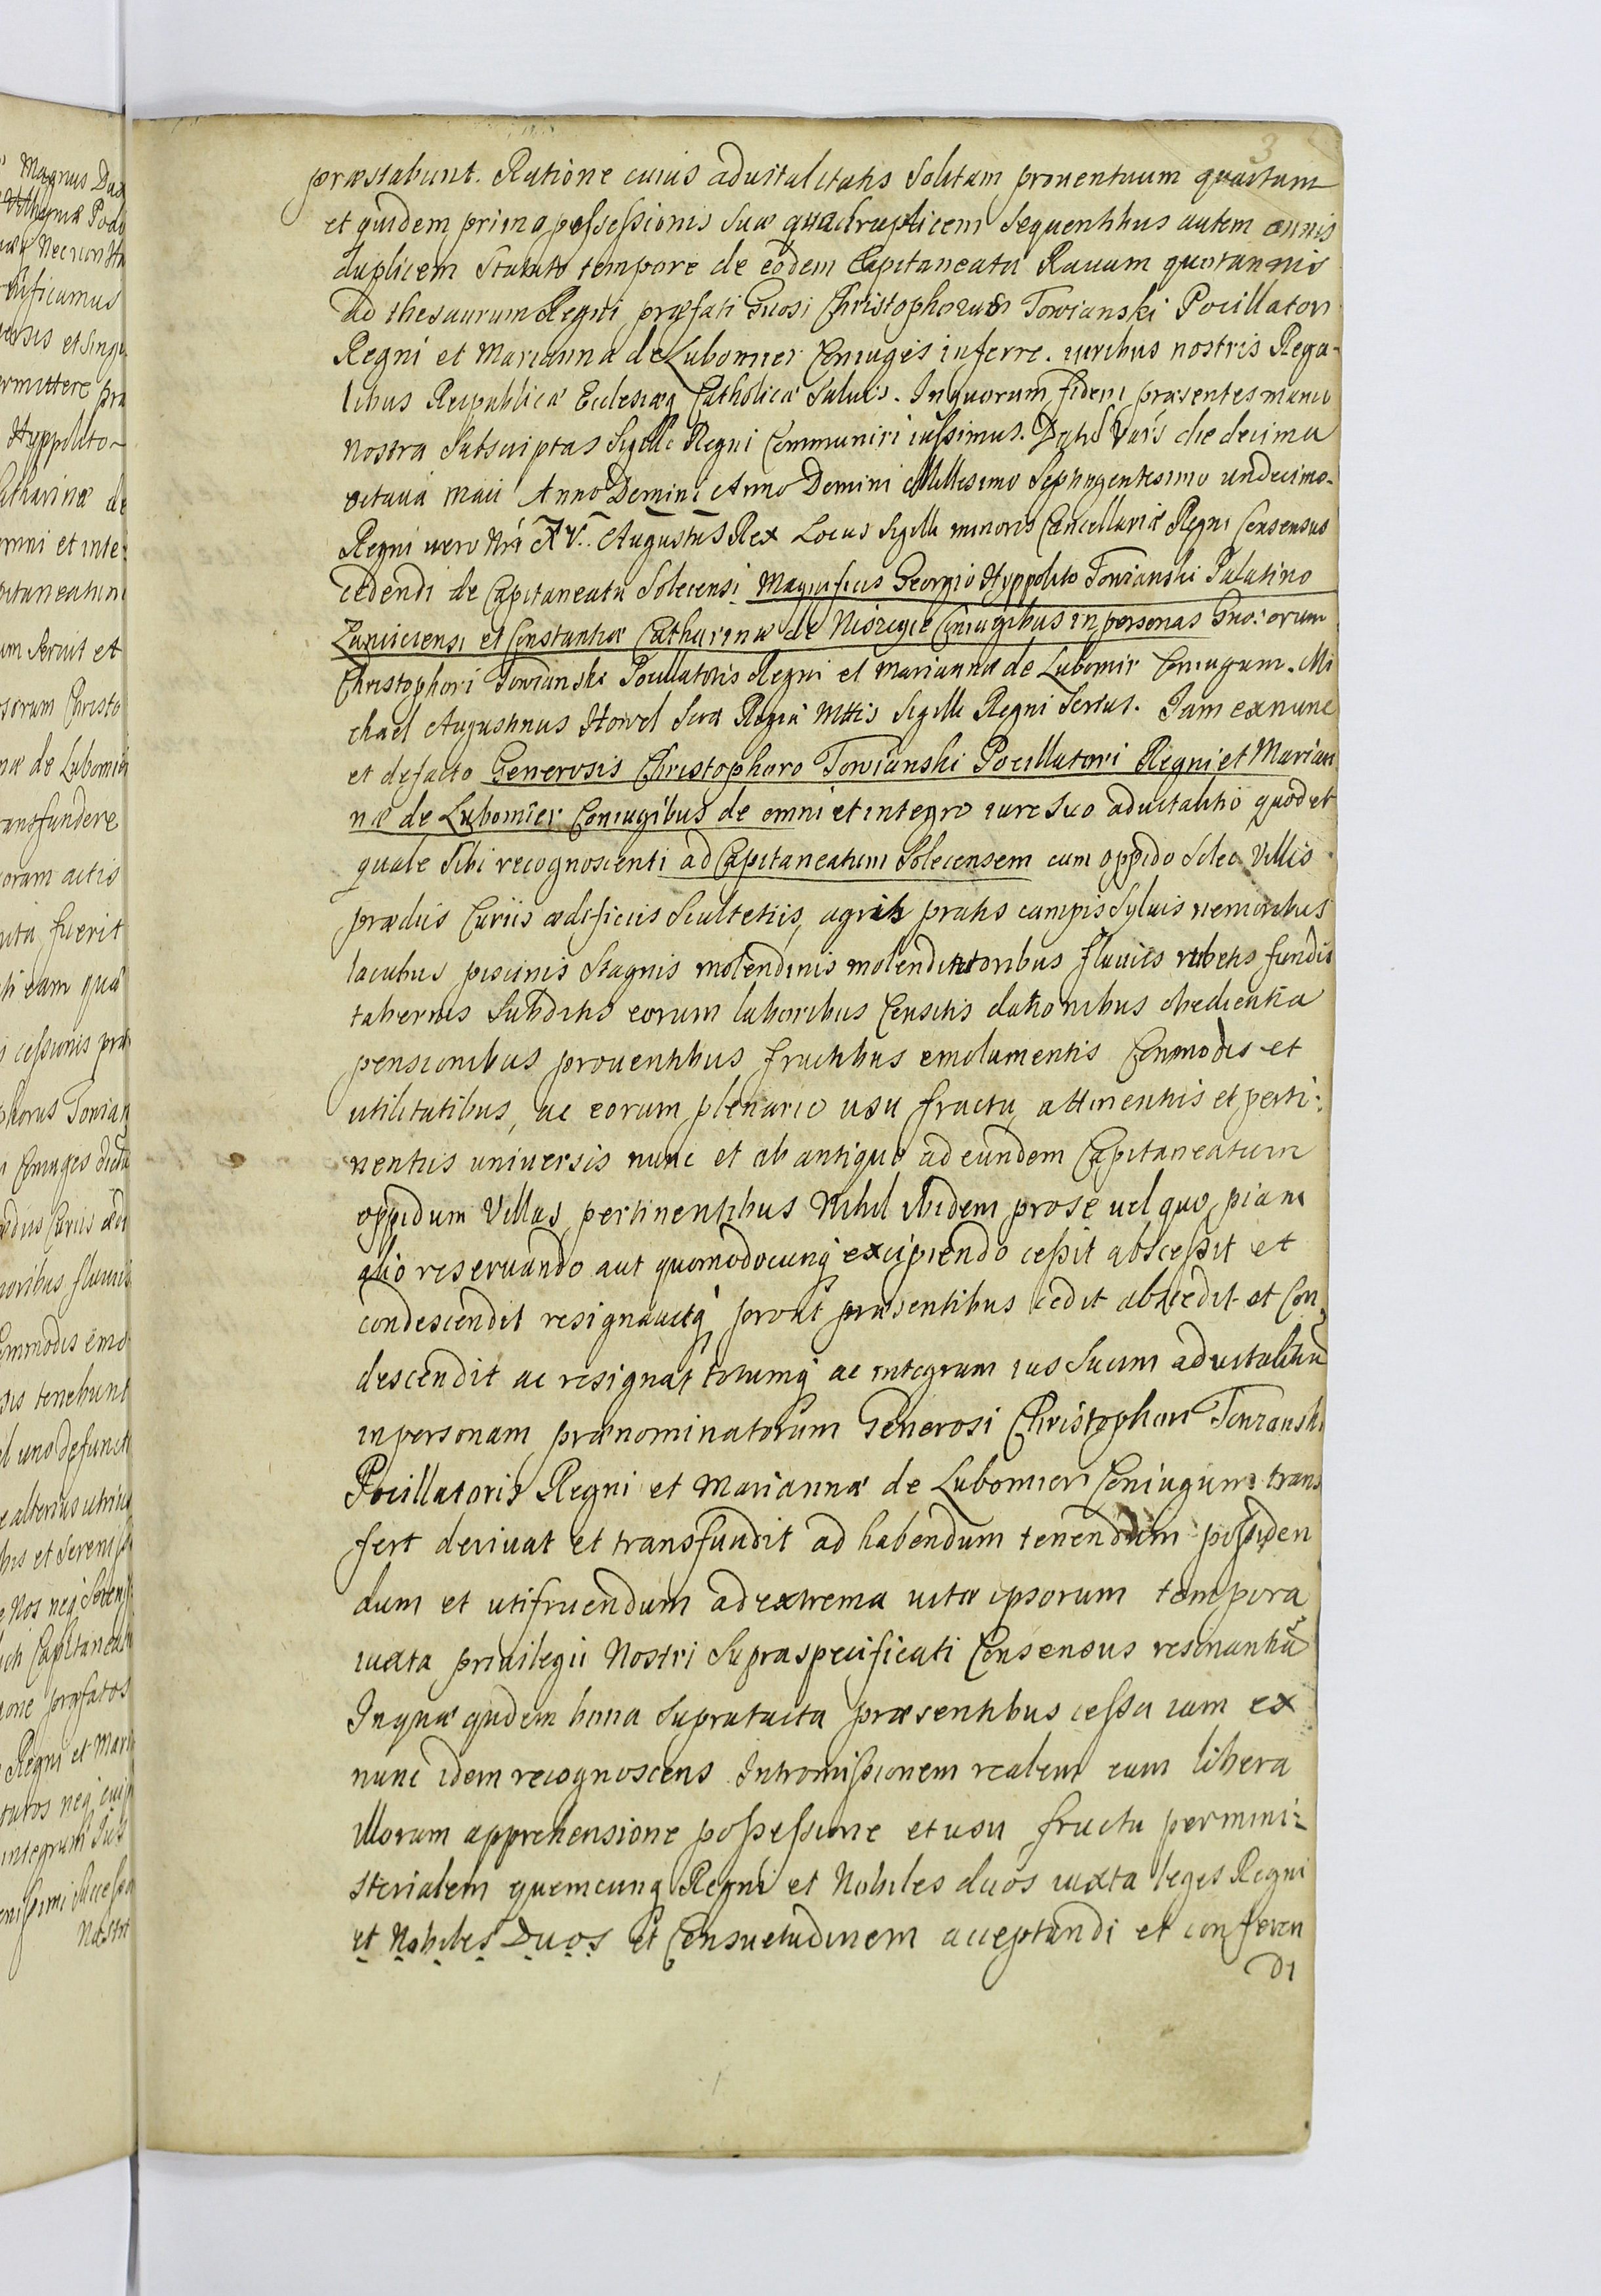 3
præstabunt. Ratione cuius aduitalitatis Solitam prouentuum quartam
et quidem primo possessionis suæ quadruplicem Sequentibus autem annis
duplicem Statuto tempore de eodem Capitaneatu Rauam quotannis
ad thesaurum Regni præfati Gnosi Christophorus Towianski Pocillator
Regni et Marianna de Lubomier Coniuges inferre. iuribus nostris Rega-
libus Reipublicæ Ecclesiæq Catholicæ Saluis. In quorum fidem præsentes manu
nostra Subscriptas Sigillo Regni Communiri iussimus. Varś die decima
octaua Maii Anno Domini Anno Domini Millesimo Septingentesimo undecimo.
Regni uero Nri XV. Augustus Rex Locus Sigilli minoris Cancellariæ Regni Consensus
cedendi de Capitaneatu Solecensi Magnificis Georgio Hyppolito Towianski Palatino
Lanciciensi et Constantiæ Catharinæ de Niszczyce Coniugibus in personas Gnos: orum
Christophori Towianski Pocillatoris Regni et Mariannæ de Lubomir Coniugum. Mi
chael Augustinus Howel Sacræ Regiæ Mttis Sigilli Regni Sertus. Iam ex nunc
et defacto Generosis Christophoro Towianski Pocillatori Regni et Marian
næ de Lubomier Coniugibus de omni et integro iure Suo aduitalitio quod et
quale Sibi recognoscenti ad Capitaneatum Solecensem cum oppido Solec Villis
prædiis Curiis ædificiis Scultetiis, agris pratis campis Syluis nemoribus
lacubus piscinis Stagnis molendinis molenditoribus fluuiis rubetis fundis
tabernis Subditis eorum laboribus Censitis dationibus obedientia
pensionibus prouentibus fructibus emolumentis Commodis et
utilitatibus, ac eorum plenario usu fructu, attinentiis et perti:
nentiis uniuersis nunc et ab antiquo ad eundem Capitaneatum
oppidum Villas pertinentibus Nihil ibidem pro se uel quo piam
alio reseruando aut quomodocunq excipiendo cessit abscessit et
condescendit resignauitq prout præsentibus cedit abscedit et Con
descendit ac resignat totumq ac integrum ius Suum aduitalitiũ
in personam prænominatorum Generosi Christophori Towianski
Pocillatoris Regni et Mariannæ de Lubomier Coniugum trans
fert deriuat et transfundit ad habendum tenendum possiden
dum et utifruendum ad extrema uitæ ipsorum tempora
iuxta priuilegii Nostri Supraspecificati Consensus resonantiã
In quæ quidem bona Supratacta præsentibus cessa iam ex
nunc idem recognoscens Intromissionem realem cum libera
illorum apprehensione possessione et usu fructu per mini-
sterialem quemcunq Regni et Nobiles duos iuxta leges Regni
et Nobiles Duos et Consuetudinem acceptandi et conferen
di